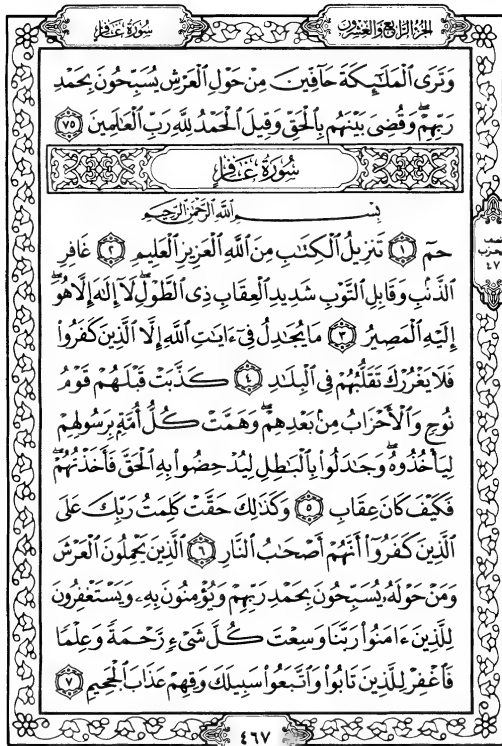 الجُزْءُ الرَّابِعُ وَالعِشْرُونَ سُورَةُ غَافِرٍ
وَتَرَى ٱلْمَلَٰٓئِكَةَ حَآفِّينَ مِنْ حَوْلِ ٱلْعَرْشِ يُسَبِّحُونَ بِحَمْدِ
رَبِّهِمْ ۖ وَقُضِىَ بَيْنَهُم بِٱلْحَقِّ وَقِيلَ ٱلْحَمْدُ لِلَّهِ رَبِّ ٱلْعَٰلَمِينَ ٧٥
سُورَةُ غَافِرٍ
بِسْمِ ٱللَّهِ ٱلرَّحْمَٰنِ ٱلرَّحِيمِ
حمٓ ١ تَنزِيلُ ٱلْكِتَٰبِ مِنَ ٱللَّهِ ٱلْعَزِيزِ ٱلْعَلِيمِ ٢ غَافِرِ
ٱلذَّنۢبِ وَقَابِلِ ٱلتَّوْبِ شَدِيدِ ٱلْعِقَابِ ذِى ٱلطَّوْلِ ۖ لَآ إِلَٰهَ إِلَّا هُوَ ۖ
إِلَيْهِ ٱلْمَصِيرُ ٣ مَا يُجَٰدِلُ فِىٓ ءَايَٰتِ ٱللَّهِ إِلَّا ٱلَّذِينَ كَفَرُوا۟
فَلَا يَغْرُرْكَ تَقَلُّبُهُمْ فِى ٱلْبِلَٰدِ ٤ كَذَّبَتْ قَبْلَهُمْ قَوْمُ
نُوحٍ وَٱلْأَحْزَابُ مِنۢ بَعْدِهِمْ ۖ وَهَمَّتْ كُلُّ أُمَّةٍۭ بِرَسُولِهِمْ
لِيَأْخُذُوهُ ۖ وَجَٰدَلُوا۟ بِٱلْبَٰطِلِ لِيُدْحِضُوا۟ بِهِ ٱلْحَقَّ فَأَخَذْتُهُمْ ۖ
فَكَيْفَ كَانَ عِقَابِ ٥ وَكَذَٰلِكَ حَقَّتْ كَلِمَتُ رَبِّكَ عَلَى
ٱلَّذِينَ كَفَرُوٓا۟ أَنَّهُمْ أَصْحَٰبُ ٱلنَّارِ ٦ ٱلَّذِينَ يَحْمِلُونَ ٱلْعَرْشَ
وَمَنْ حَوْلَهُۥ يُسَبِّحُونَ بِحَمْدِ رَبِّهِمْ وَيُؤْمِنُونَ بِهِۦ وَيَسْتَغْفِرُونَ
لِلَّذِينَ ءَامَنُوا۟ رَبَّنَا وَسِعْتَ كُلَّ شَىْءٍ رَّحْمَةً وَعِلْمًا
فَٱغْفِرْ لِلَّذِينَ تَابُوا۟ وَٱتَّبَعُوا۟ سَبِيلَكَ وَقِهِمْ عَذَابَ ٱلْجَحِيمِ ٧
الحزب
٤٧
٤٦٧